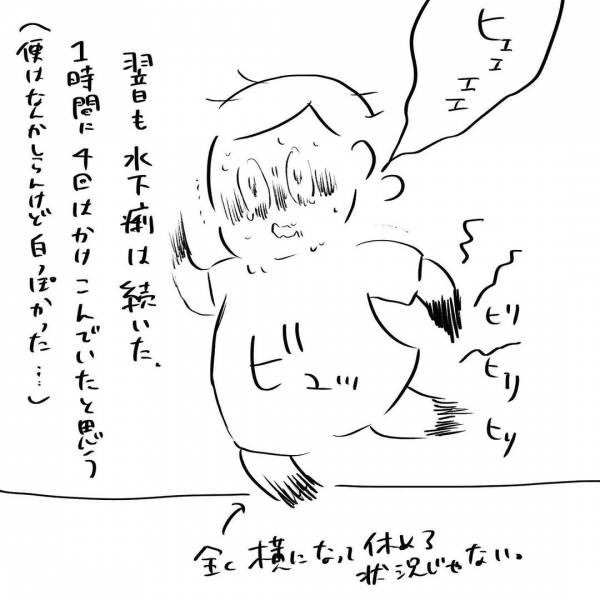 ヒェェェェ
翌日も水下痢は続いた。
1時間に4回はかけこんでいたと思う
(便はなんかしらんけど白っぽかった…)
ビュッッ
ヒリ
ヒリ
ヒリ
全く横になって休める
状況じゃない。